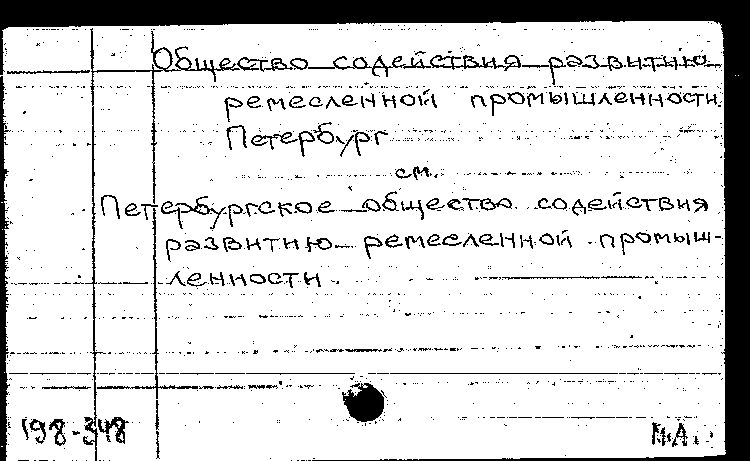 Общество содействия развитию
ремесленной промышленности.
Петербург
см.
Петербургское общество содействия
развитию ремесленной промыш-
ленности.
198-348
М.А.